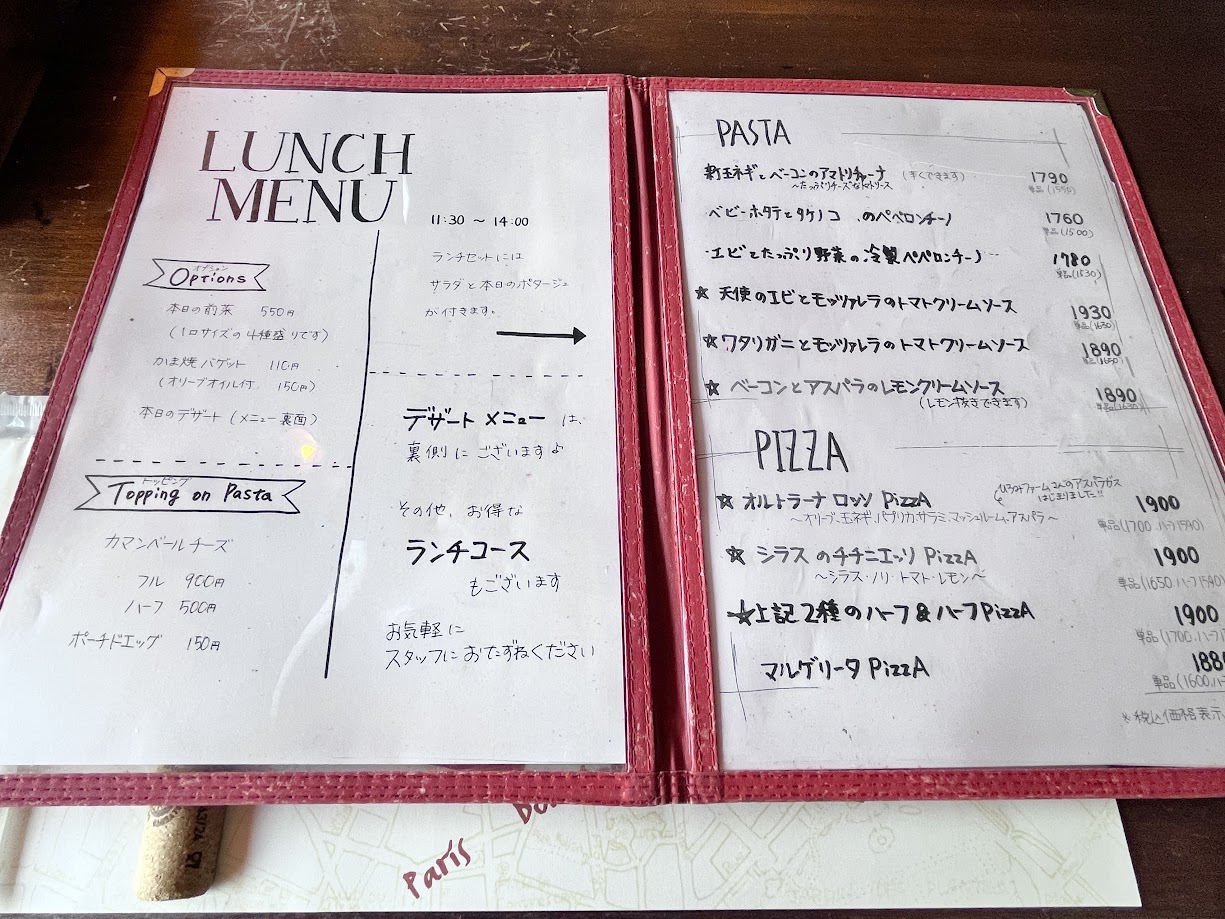 LUNCH
MENU
11:30 ～ 14:00
オプション
Options
本日の前菜 550円
(1口サイズの4種盛りです)
かま焼バゲット 110円
(オリーブオイル付. 150円)
本日のデザート (メニュー裏面)
トッピング
Topping on Pasta
カマンベールチーズ
フル 900円
ハーフ 500円
ポーチドエッグ 150円
ランチセットには
サラダと本日のポタージュ
が付きます。
デザート メニュー は、
裏側にございますよ
その他、お得な
ランチコース
もございます
お気軽に
スタッフにおたずねください
PASTA
新玉ネギとベーコンのアマトリチャーナ (辛くできます) 1790
～たっぷりチーズなトマトソース 単品(1550)
ベビーホタテとタケノコ のペペロンチーノ 1760
単品(1500)
エビとたっぷり野菜の冷製ペペロンチーノ 1780
単品(1530)
☆ 天使のエビとモッツァレラのトマトクリームソース 1930
単品(1630)
☆ ワタリガニとモッツァレラのトマトクリームソース 1890
単品(1650)
☆ ベーコンとアスパラのレモンクリームソース 1890
(レモン抜きできます) 単品
PIZZA
ひろみファームさんのアスパラガス
はじまりました!!
☆ オルトラーナ ロッソ PizzA 1900
～オリーブ、玉ネギ、パプリカ、サラミ、マッシュルーム、アスパラ～ 単品(1700.ハーフ1590)
☆ シラスのチチニエッリ PizzA 1900
～シラス・ノリ・トマト・レモン～ 単品(1650.ハーフ1540)
☆上記2種のハーフ&ハーフPizzA 1900
単品(1700.ハーフ
マルゲリータ PizzA 1880
単品(1600.ハ
※税込価格表示
Paris